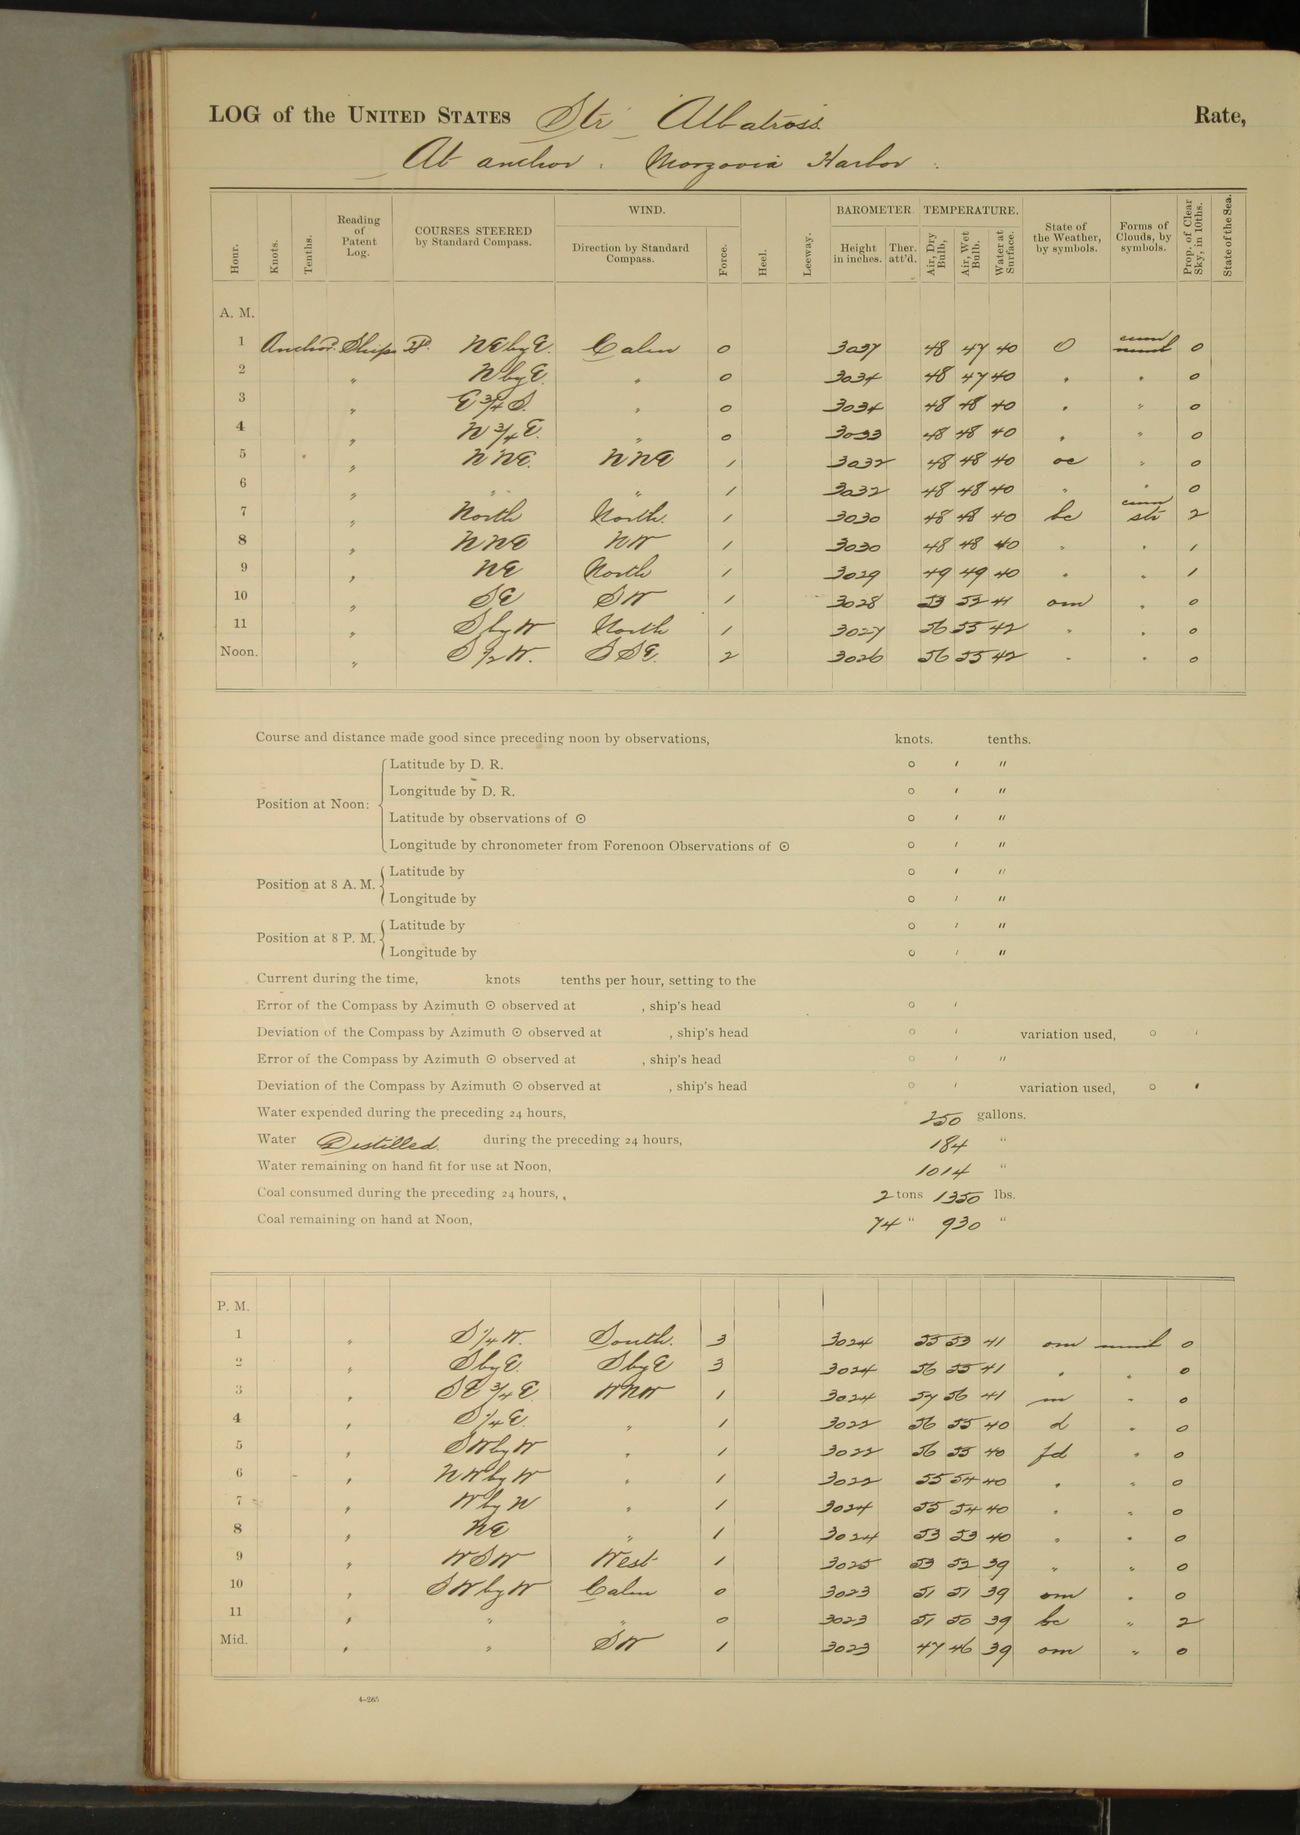 LOG of the UNITED STATES Str Albatross Rate,
At anchor . Morzovia Harbor .
Hour. Knots. Tenths. Reading of Patent Log. COURSES STEERED by Standard Compass. WIND. Direction by Standard Compass. Force. Heel. Leeway. BAROMETER. Height in inches. Ther. att'd. TEMPERATURE. Air, Dry Bulb. Air, Wet Bulb. Water at Surface. State of the Weather, by symbols. Forms of Clouds, by symbols. Prop. of Clear Sky, in 10ths. State of the Sea.
A. M.
1 Anchor. Ships Hd. NE by E. Calm 0 3037 48 47 40 O cum nimb 0
2 " N by E. " 0 3034 48 47 40 " " 0
3 " E 3/4 S. " 0 3034 48 48 40 " " 0
4 " N 3/4 E. " 0 3033 48 48 40 " " 0
5 " NNE. NNE 1 3032 48 48 40 oc " 0
6 " " " 1 3032 48 48 40 " " 0
7 " North North. 1 3030 48 48 40 bc cum str 2
8 " NNE NW 1 3030 48 48 40 " " 1
9 " NE North 1 3029 49 49 40 " " 1
10 " SE SW 1 3028 53 52 41 om " 0
11 " S by W North 1 3027 56 55 42 " " 0
Noon. " S 1/2 W. SSE. 2 3026 56 55 42 " " 0
Course and distance made good since preceding noon by observations, knots. tenths.
Position at Noon: Latitude by D. R. ° ′ ″
Longitude by D. R. ° ′ ″
Latitude by observations of ☉ ° ′ ″
Longitude by chronometer from Forenoon Observations of ☉ ° ′ ″
Position at 8 A. M. Latitude by ° ′ ″
Longitude by ° ′ ″
Position at 8 P. M. Latitude by ° ′ ″
Longitude by ° ′ ″
Current during the time, knots tenths per hour, setting to the
Error of the Compass by Azimuth ☉ observed at , ship's head ° ′
Deviation of the Compass by Azimuth ☉ observed at , ship's head ° ′ variation used, ° ′
Error of the Compass by Azimuth ☉ observed at , ship's head ° ′ ″
Deviation of the Compass by Azimuth ☉ observed at , ship's head ° ′ variation used, ° ′
Water expended during the preceding 24 hours, 250 gallons.
Water Distilled. during the preceding 24 hours, 184 "
Water remaining on hand fit for use at Noon, 1014 "
Coal consumed during the preceding 24 hours, 2 tons 1350 lbs.
Coal remaining on hand at Noon, 74 " 930 "
P. M.
1 " S 1/4 W. South. 3 3024 55 53 41 om nimb 0
2 " S by E. S by E 3 3024 56 55 41 " " 0
3 " SE 3/4 E. WNW 1 3024 57 56 41 m " 0
4 " S 1/4 E. " 1 3022 56 55 40 d " 0
5 " SW by W " 1 3022 56 55 40 fd " 0
6 " NW by W " 1 3022 55 54 40 " " 0
7 " W by N " 1 3024 55 54 40 " " 0
8 " NE " 1 3024 53 53 40 " " 0
9 " WSW West 1 3025 53 52 39 " " 0
10 " SW by W Calm 0 3023 51 51 39 om " 0
11 " " " 0 3023 51 50 39 bc " 2
Mid. " " SW 1 3023 47 46 39 om " 0
4-265